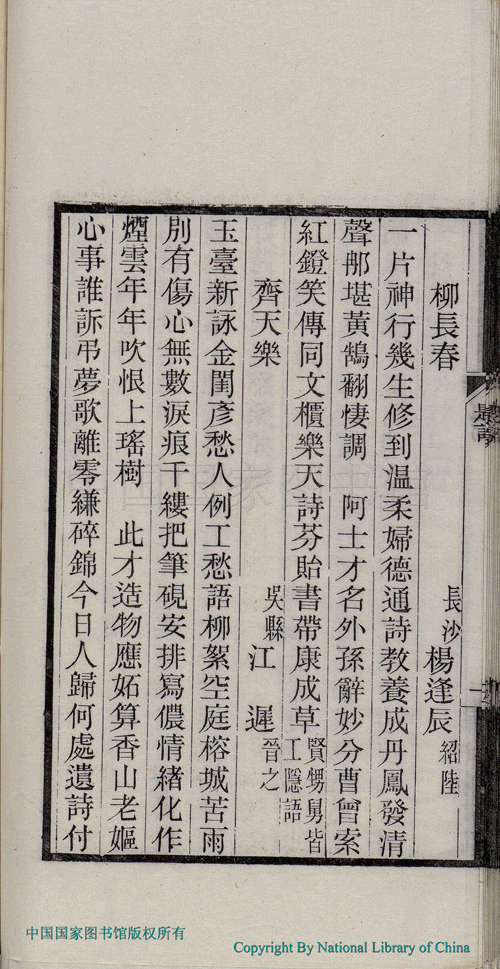 柳長春　長沙楊逢辰紹陸
一片神行幾生修到溫柔婦德通詩教養成丹鳳發清
聲那堪黃鵠翻悽調　阿士才名外孫辭妙分曹曾索
紅鐙笑傳同文櫃樂天詩芬貽書帶康成草賢甥舅皆工隱語
齊天樂　吳縣江遲晉之
玉臺新詠金閨彥愁人例工愁語柳絮空庭榕城苦雨
別有傷心無數淚痕千縷把筆硯安排寫儂情緒化作
煙雲年年吹恨上瑤樹　此才造物應妬算香山老嫗
心事誰訴弔夢歌離零縑碎錦今日人歸何處遺詩付
中国国家图书馆版权所有
Copyright By National Library of China